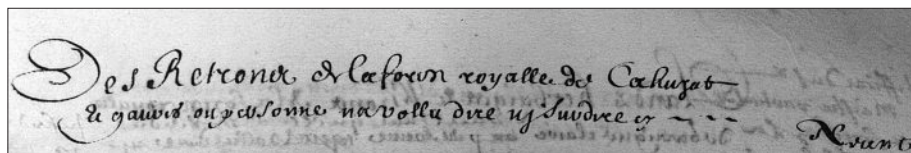 Des Retronet de la forin royalle de Cahuzat
et gauvis ou personne na vollu dire ny surdire cy
Neant